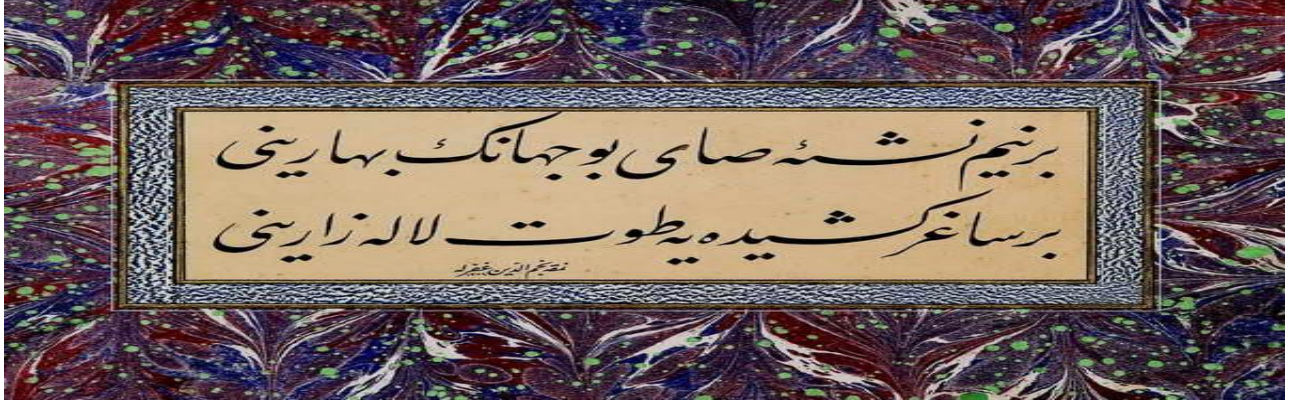 برنیم نشئه صای بوجهانك بهارینی
برساغر کشیده یه طوت لاله زارینی
نمقه نجم الدین غفرله